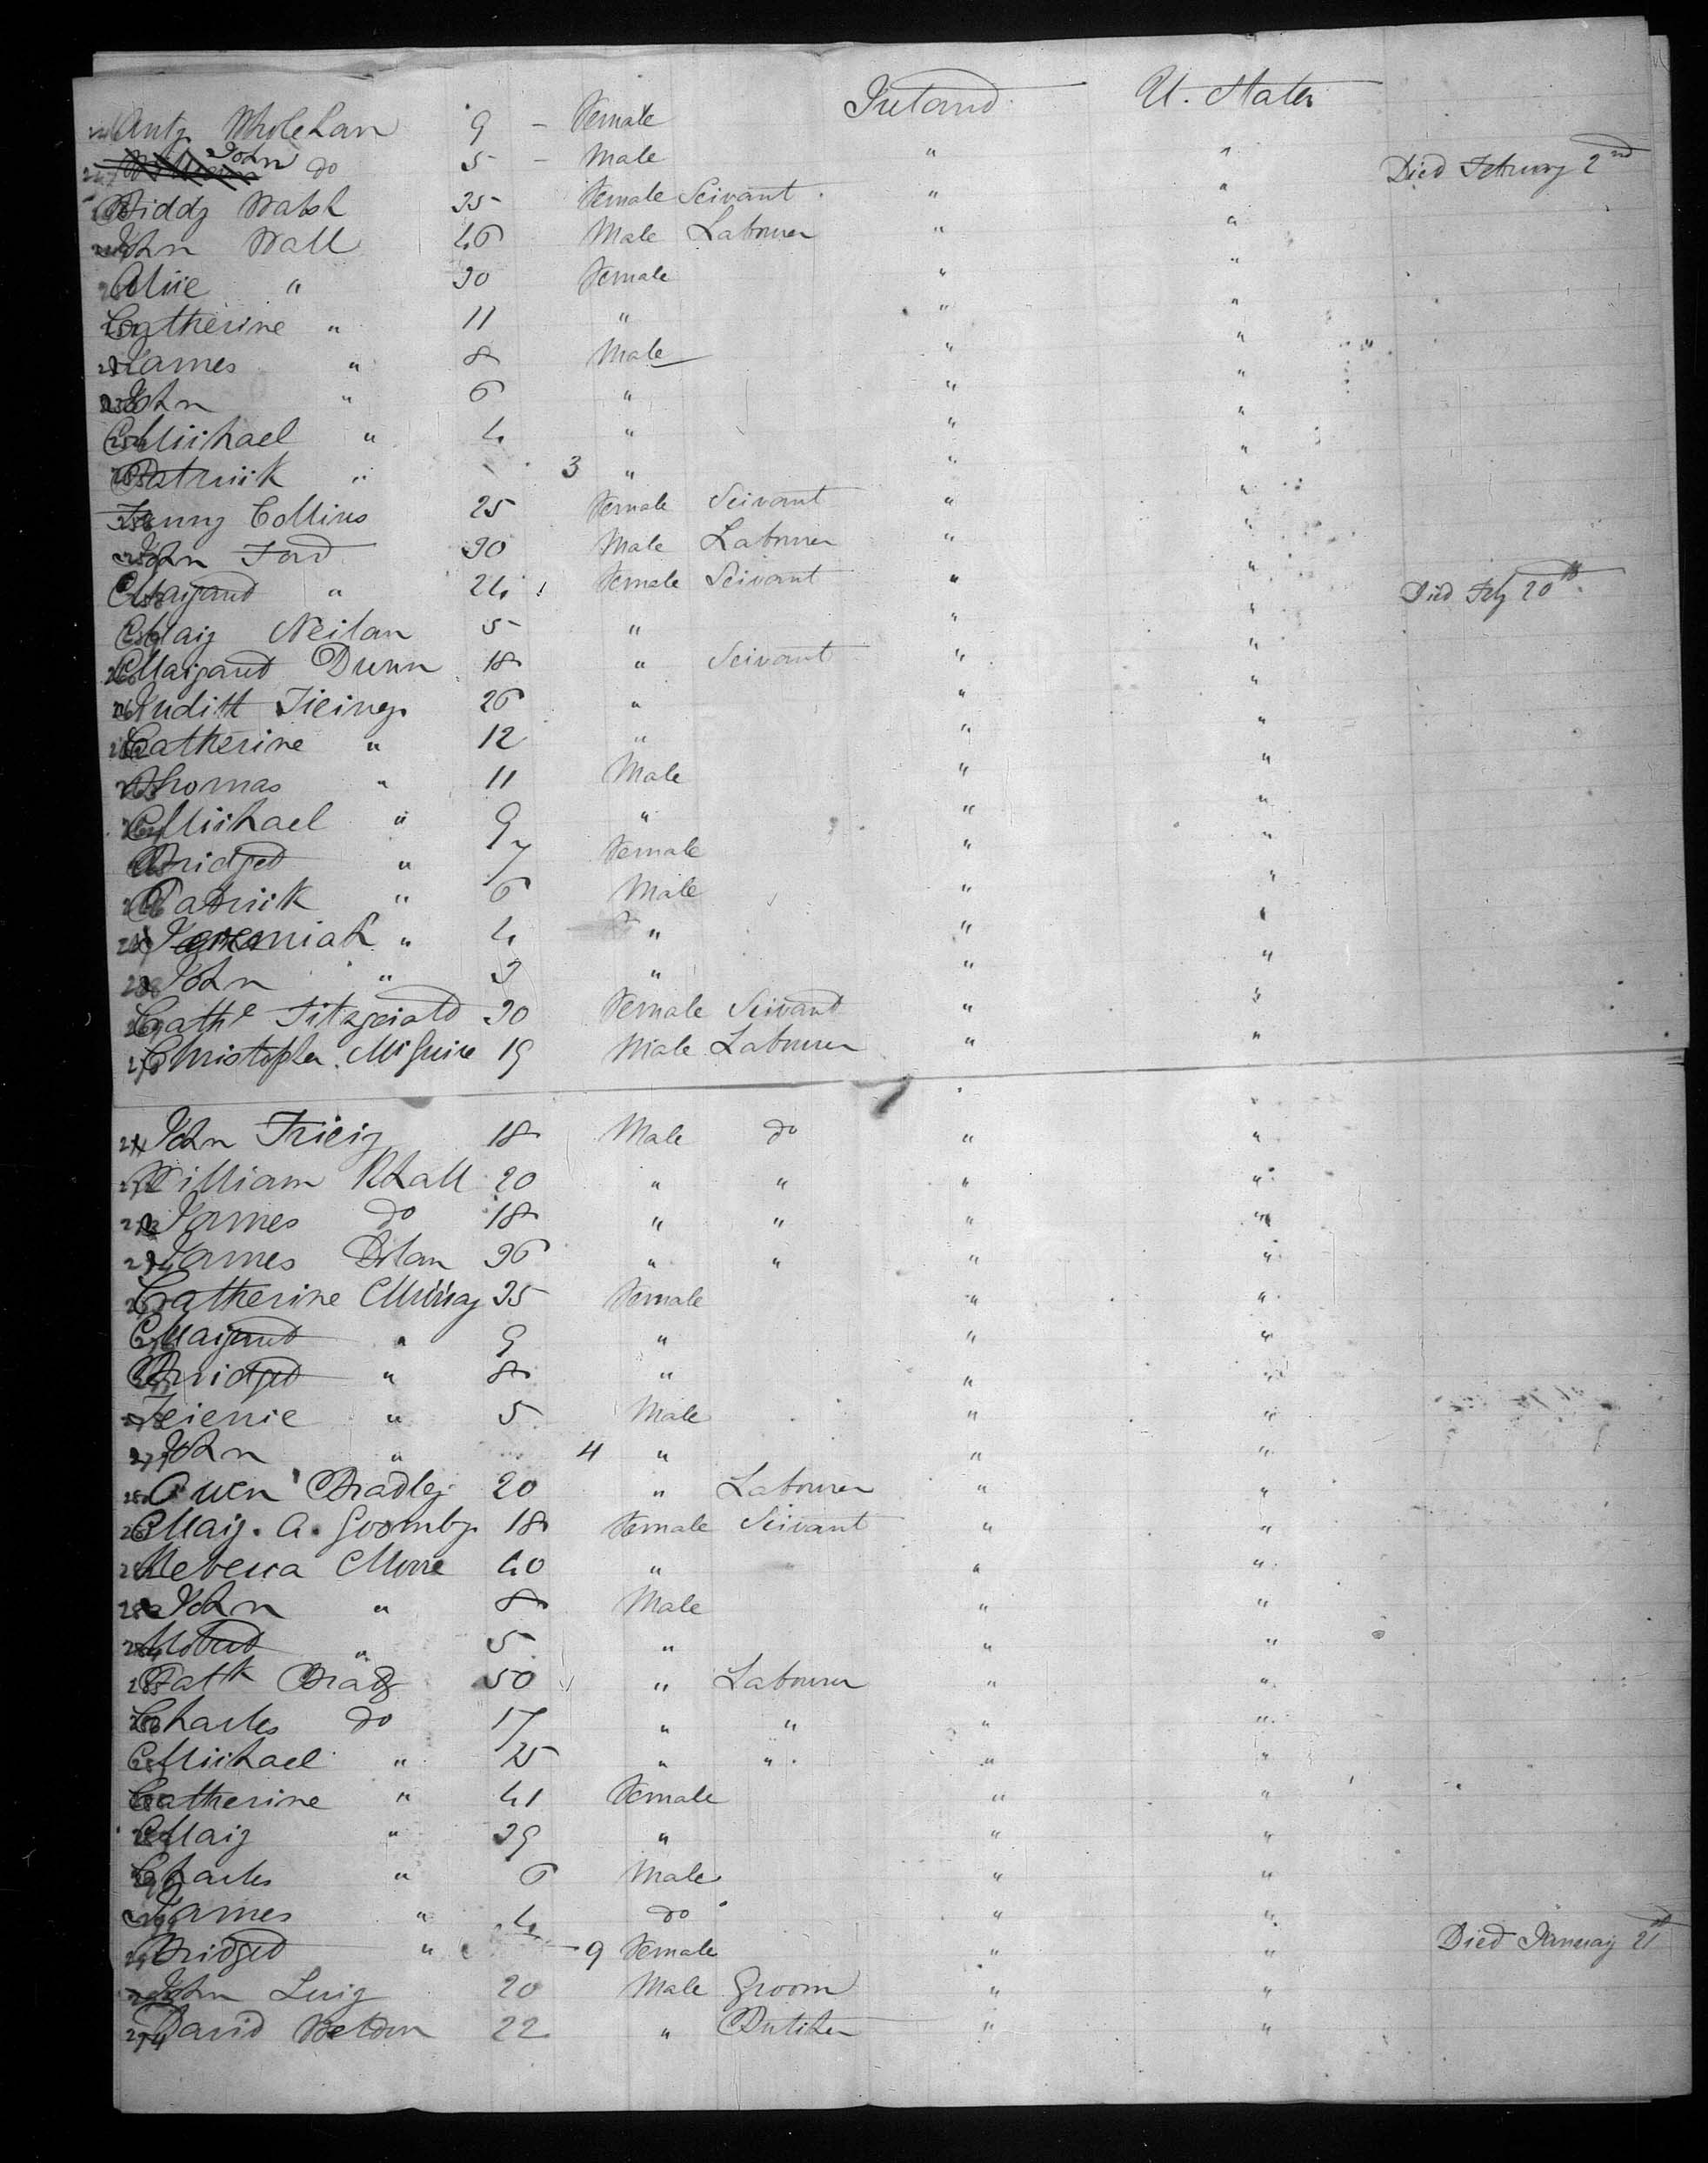 Anty Wholehan 9 – Female Ireland U. States
247 John do 5 – Male " " Died February 2nd
Biddy Walsh 35 Female Servant " "
John Wall 46 Male Labourer " "
Alice " 30 Female " "
Catherine " 11 " " "
James " 8 Male " "
John " 6 " " "
Michael " 4 " " "
Patrick " 3 " " "
Fanny Collins 25 Female Servant " "
John Ford 30 Male Labourer " "
Margaret " 24 Female Servant " " Died Feby 20th
Mary Neilan 5 " " "
Margaret Dunn 18 " Servant " "
Judith 26 " " "
Catherine " 12 " " "
Thomas " 11 Male " "
Michael " 9 " " "
Bridget " 7 Female " "
Patrick " 6 Male " "
Jeremiah " 4 " " "
John " 3 " " "
Cathe Fitzgerald 30 Female Servant " "
270 Christopher McGuire 19 Male Labourer " "
271 John 18 Male do " "
272 William Rhall 20 " " " "
273 James do 18 " " " "
274 James Dolan 36 " " " "
275 Catherine Murray 35 Female " "
276 Margaret " 9 " " "
277 Bridget " 8 " " "
278 " 5 Male " "
279 John " 4 " " "
280 Owen Bradley 20 " Labourer " "
281 Mary. A. Goomby 18 Female Servant " "
282 Rebecca Moore 40 " " "
283 John " 8 Male " "
284 Robert " 5 " " "
285 Patk Brady 50 " Labourer " "
286 Charles do 17 " " " "
287 Michael " 15 " " " "
288 Catherine " 41 Female " "
289 Mary " 39 " " "
290 Charles " 6 Male " "
291 James " 4 do " "
292 Bridget " 9 Female " " Died January 21st
293 John 20 Male Groom " "
294 David Weldon 22 " Butcher " "